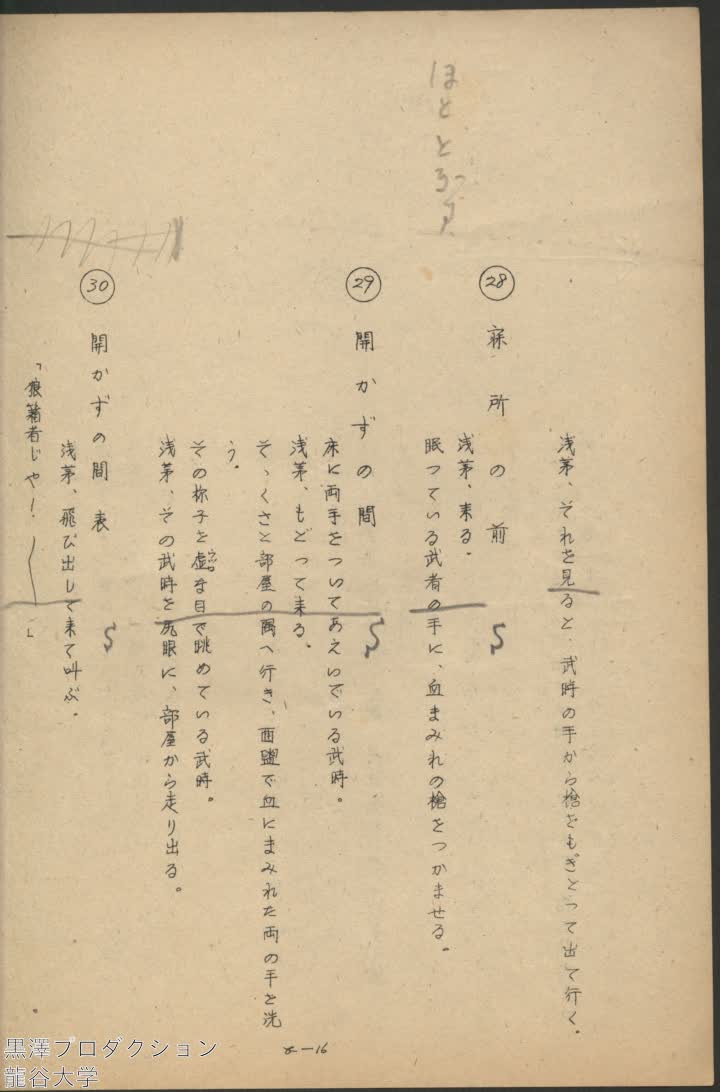 浅茅、それを見ると、武時の手から槍をもぎとって出て行く。
28 寝所の前
浅茅、来る。
眠っている武者の手に、血まみれの槍をつかませる。
29 開かずの間
床に両手をついてあえいでいる武時。
浅茅、もどって来る。
そゝくさと部屋の隅へ行き、西盥で血にまみれた両の手を洗
う。
その様子を虚な目で眺めている武時。
浅茅、その武時を尻眼に、部屋から走り出る。
30 開かずの間 表
浅茅、飛び出して来て叫ぶ。
「狼藉者じゃ！」
ほとと
2—16
黒澤プロダクション
龍谷大学